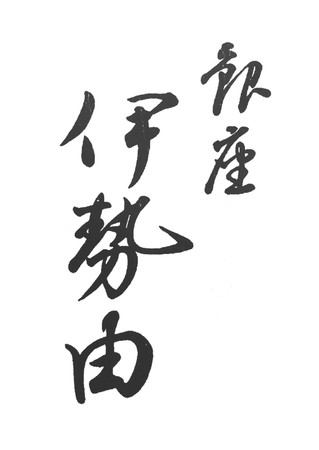 銀座
伊勢由